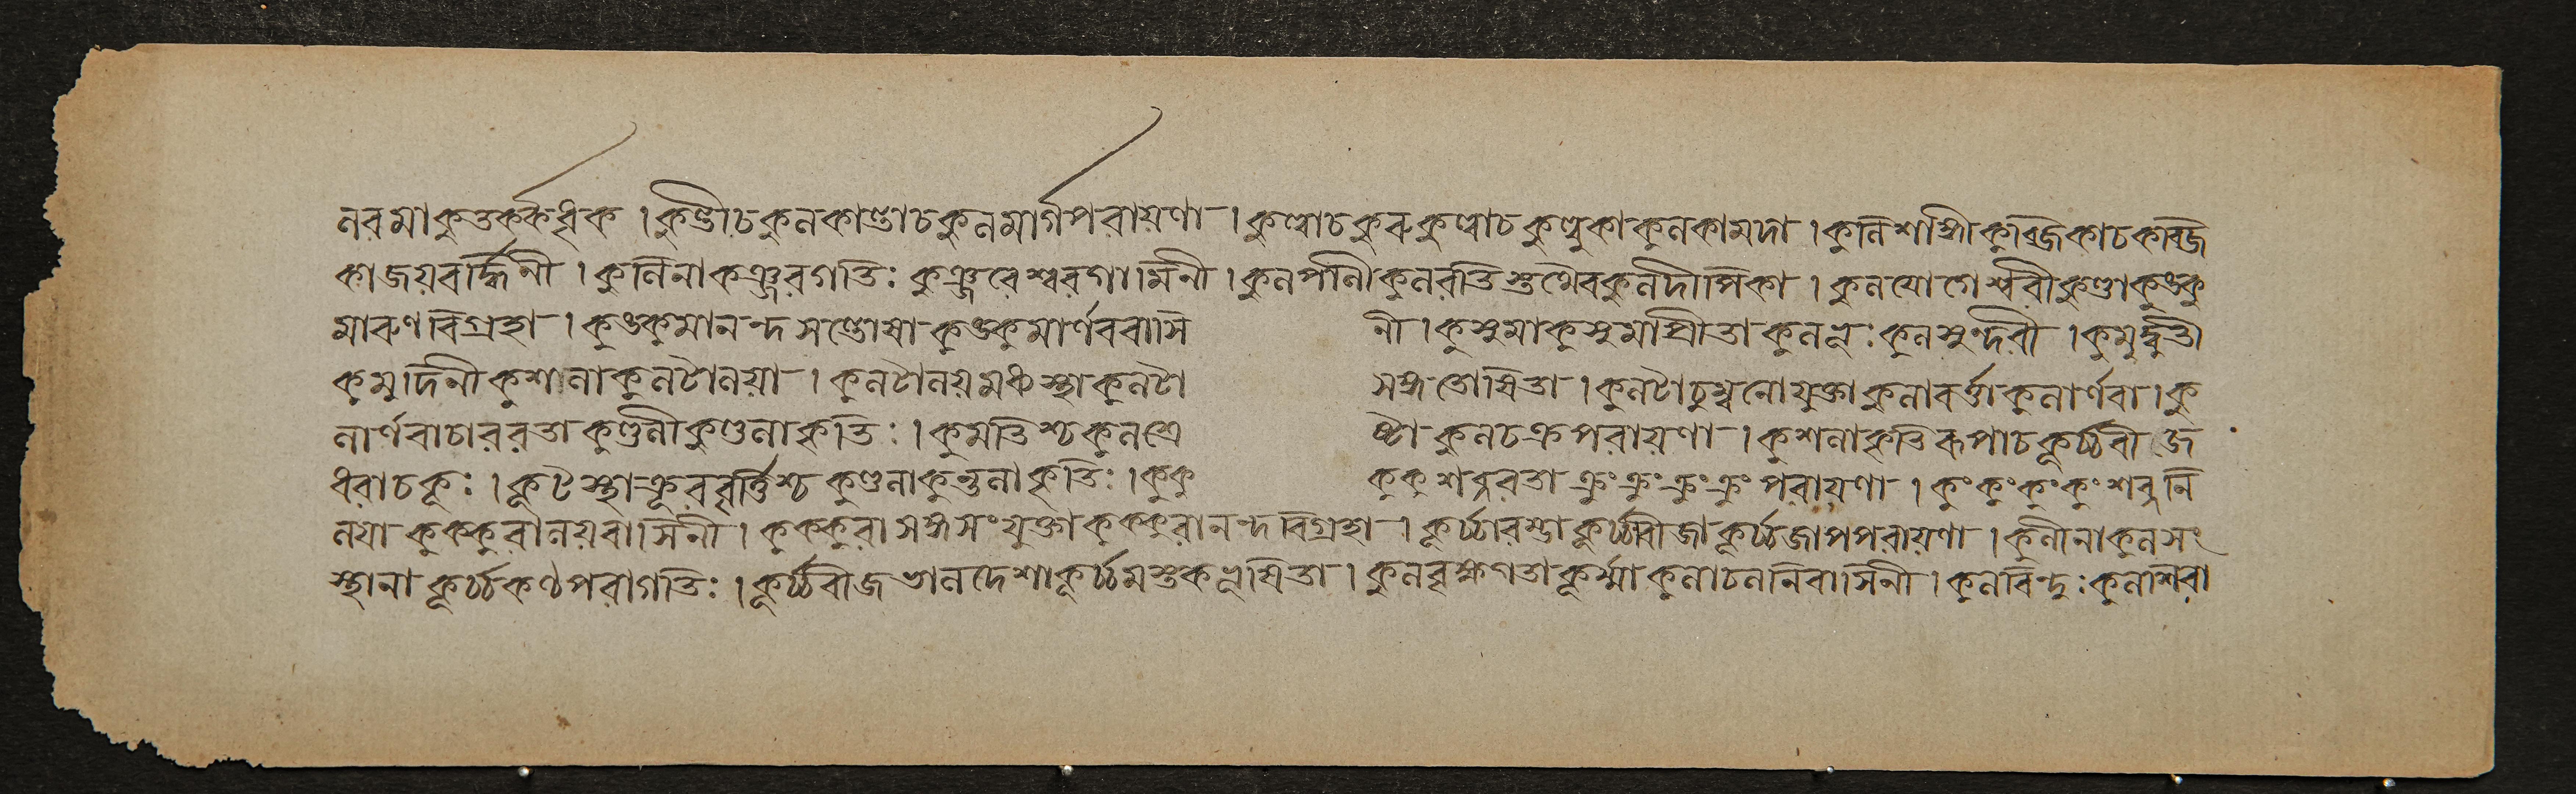 নবমাকুতর্কর্কধৃক । কুণ্ডাচকুলকাণ্ডাচকুলমার্গপরায়ণা । কুণ্বাচকুরুকুণ্বাচকুণ্বুকাকুলকামদা । কুলিশাঙ্গীকুব্জিকাচকাব্জি
কাজয়বর্দ্ধিনী । কুলিনাকঞ্জরগতিঃ কুঞ্জরেশ্বরগামিনী । কুলপালীকুলরতিস্তুথৈবকুলদীপিকা । কুলযোগেশ্বরীকুণ্ডাকুঙ্কু
মারুণবিগ্রহা । কুঙ্কুমানন্দসন্তোষাকুঙ্কুমার্ণববাসি নী । কুসুমাকুসুমাপ্রীতাকুলভূঃ কুলসুন্দরী । কুমুদ্বতী
কুমুদিনীকুশলাকুলটালয়া । কুলটালয়মধ্যস্থাকুলটা সঙ্গতোষিতা । কুলটাচুম্বনোযুক্তাকুলাবর্ত্তাকুলার্ণবা । কু
লার্ণবাচাররতাকুণ্ডলীকুণ্ডলাকৃতিঃ । কুমতিশ্চকুলশ্রে ষ্ঠাকুলচক্রপরায়ণা । কুশলাকৃতিরূপাচকূর্চ্চবীজ
ধরাচকূঃ । কূটস্থাক্রূরবৃত্তিশ্চকুণ্ডলাকুন্তলাকৃতিঃ । কুকু কুকুশব্দরতাক্রুংক্রুংক্রুংক্রুংপরায়ণা । কুংকুংকুংকুংশব্দনি
লয়াকুক্কুরালয়বাসিনী । কুক্কুরাসঙ্গসংযুক্তাকুক্কুরানন্দবিগ্রহা । কূর্চ্চারম্ভাকূর্চ্চবীজাকূর্চ্চজাপপরায়ণা । কুলীনাকুলসং
স্থানাকূর্চ্চকণ্ঠপরাগতিঃ । কূর্চ্চবীজভালদেশাকূর্চ্চমস্তকভূষিতা । কুলবৃক্ষগতাকূর্ম্মাকুলাচলনিবাসিনী । কুলবিন্দুঃ কুলশিবা